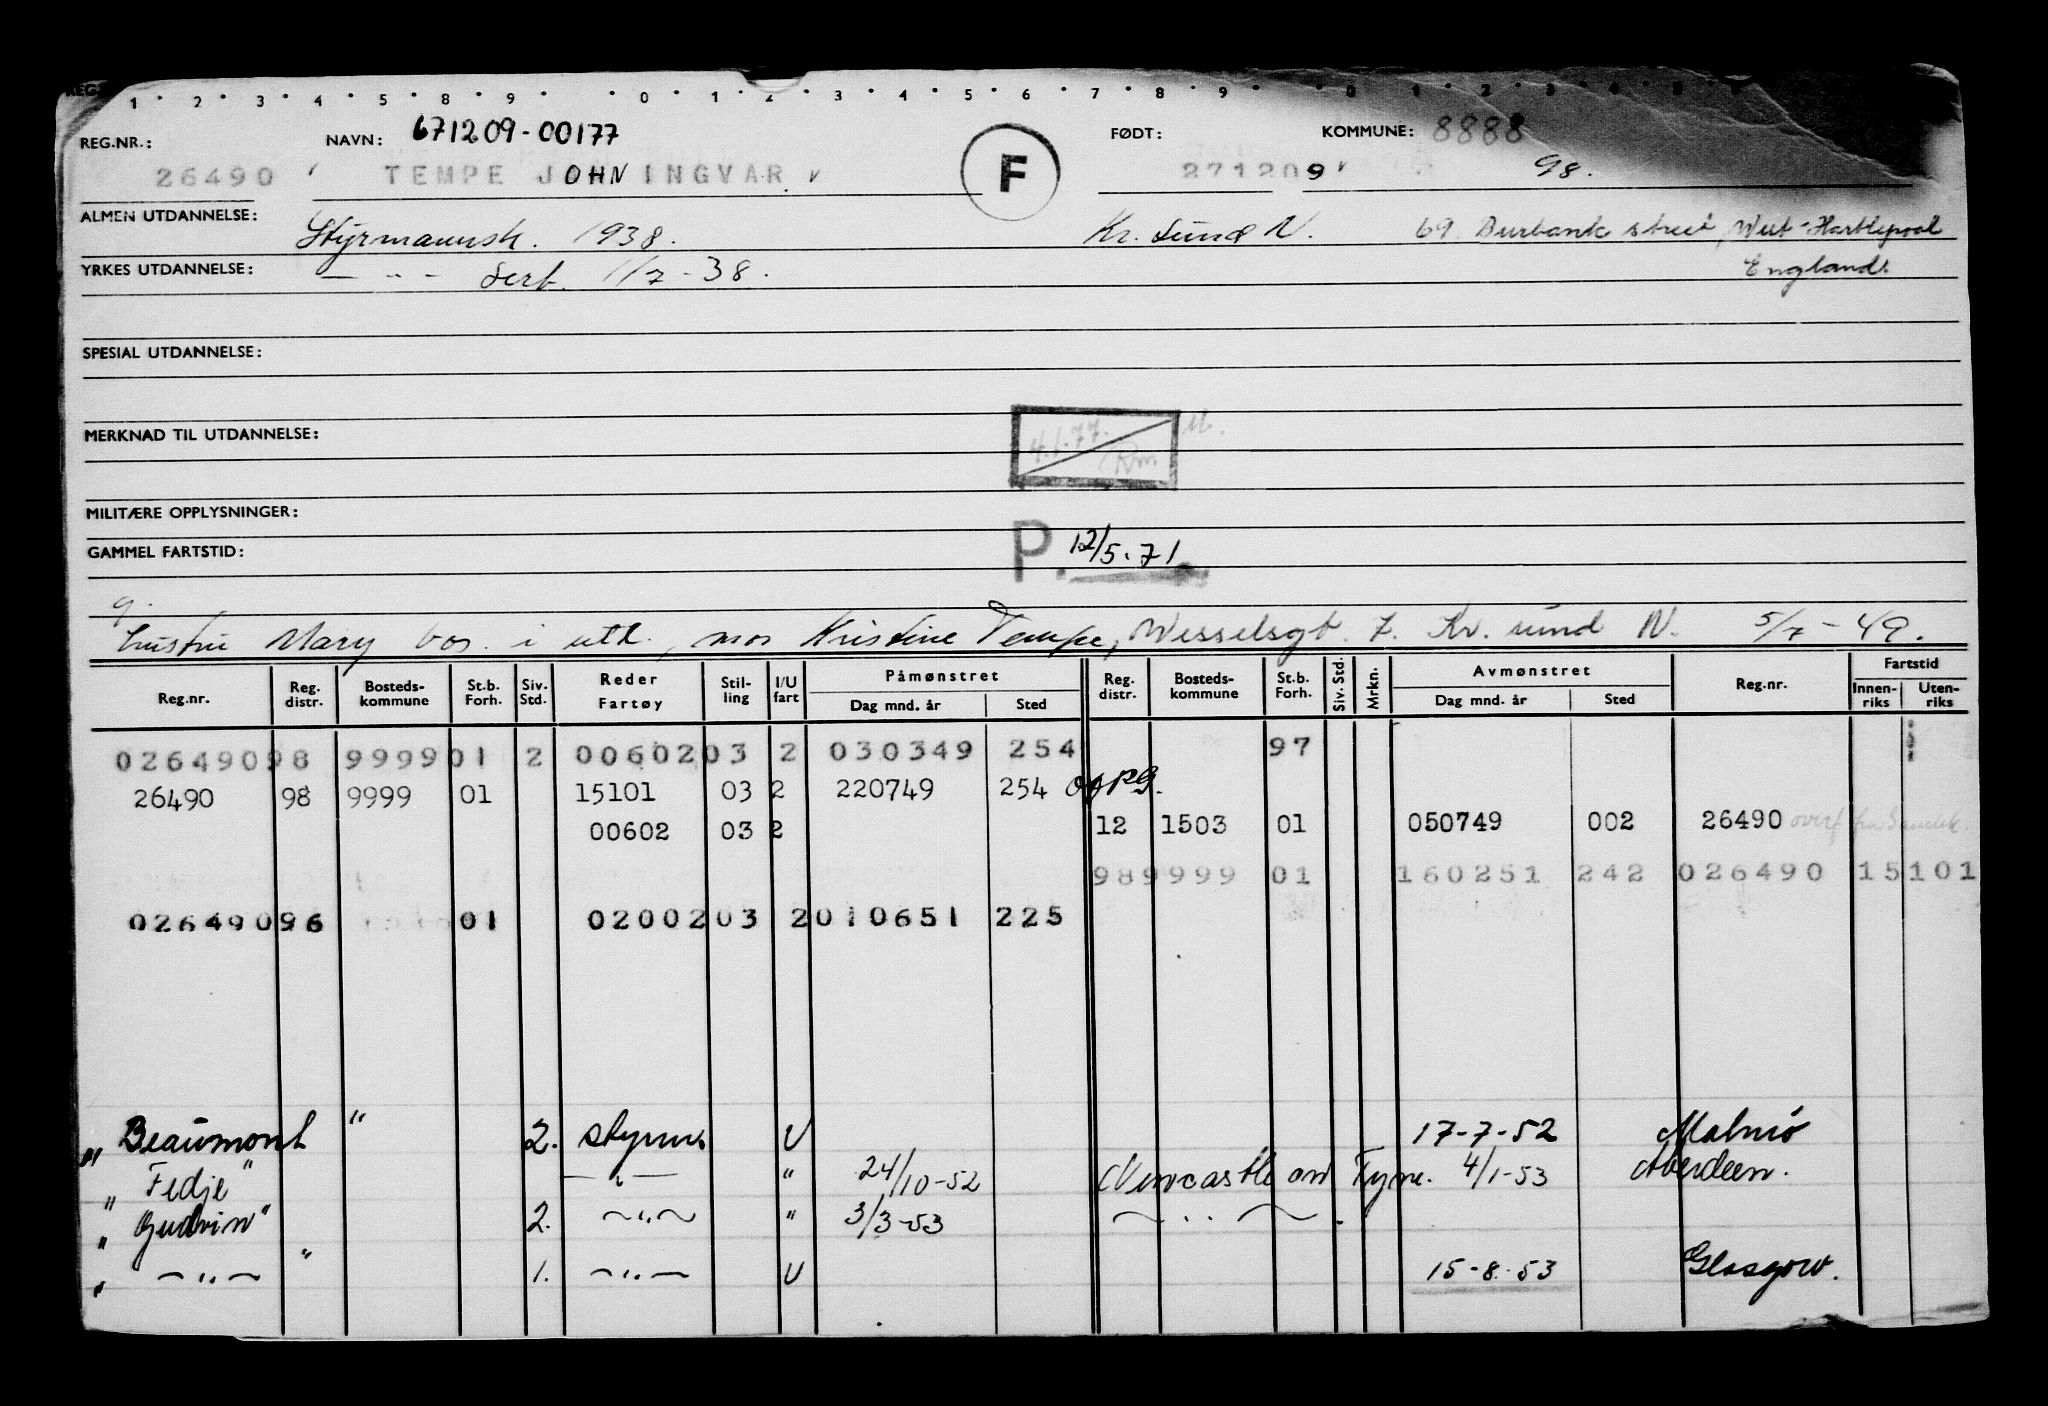 REG.
1 · 2 · 3 · 4 · 5 · 8 · 9 · · 0 · 1 · 2 · 3 · 4 · 5 · 6 · 7 · 8 · 9 · · 0 · 1 · 2 · 3 · 4 · 5
REG.NR.: NAVN: 671209-00177 FØDT: KOMMUNE: 8888
26490 TEMPE JOHN INGVAR F 271209 98.
ALMEN UTDANNELSE: Styrmannsk. 1938. Kr. sund N. 69 Burbank street, West-Hartlepool
YRKES UTDANNELSE: — " — Sert. 11/7-38. England.
SPESIAL UTDANNELSE:
MERKNAD TIL UTDANNELSE: 4.1.77.
MILITÆRE OPPLYSNINGER:
GAMMEL FARTSTID: P. 12/5.71
g.
hustru Mary bos. i utl., mor Kristine Tempe, Wesselsgt. 7. Kr. sund N. 5/7-49.
Reg.nr. Reg. distr. Bosteds-kommune St.b. Forh. Siv. Std. Reder Fartøy Stil-ling I/U fart Påmønstret Dag mnd. år Sted Reg. distr. Bosteds-kommune St.b. Forh. Siv. Std. Mrkn. Avmønstret Dag mnd. år Sted Reg.nr. Fartstid Innen-riks Uten-riks
026490 98 9999 01 2 00602 03 2 030349 254 97
26490 98 9999 01 15101 03 2 220749 254 OPPG.
00602 03 2 12 1503 01 050749 002 26490 overf fra
98 9999 01 160251 242 026490 15 101
026490 96 01 02002 03 2 010651 225
" Beaumont " 2. styrm U 17-7-52 Malmö
" Fedje " — " — " 24/10-52 Newcastle on Tyne. 4/1-53 Aberdeen.
" Gudvin " 2. — " — " 3/3-53 — " — .
" — " — " 1. — " — U 15-8-53 Glasgow.